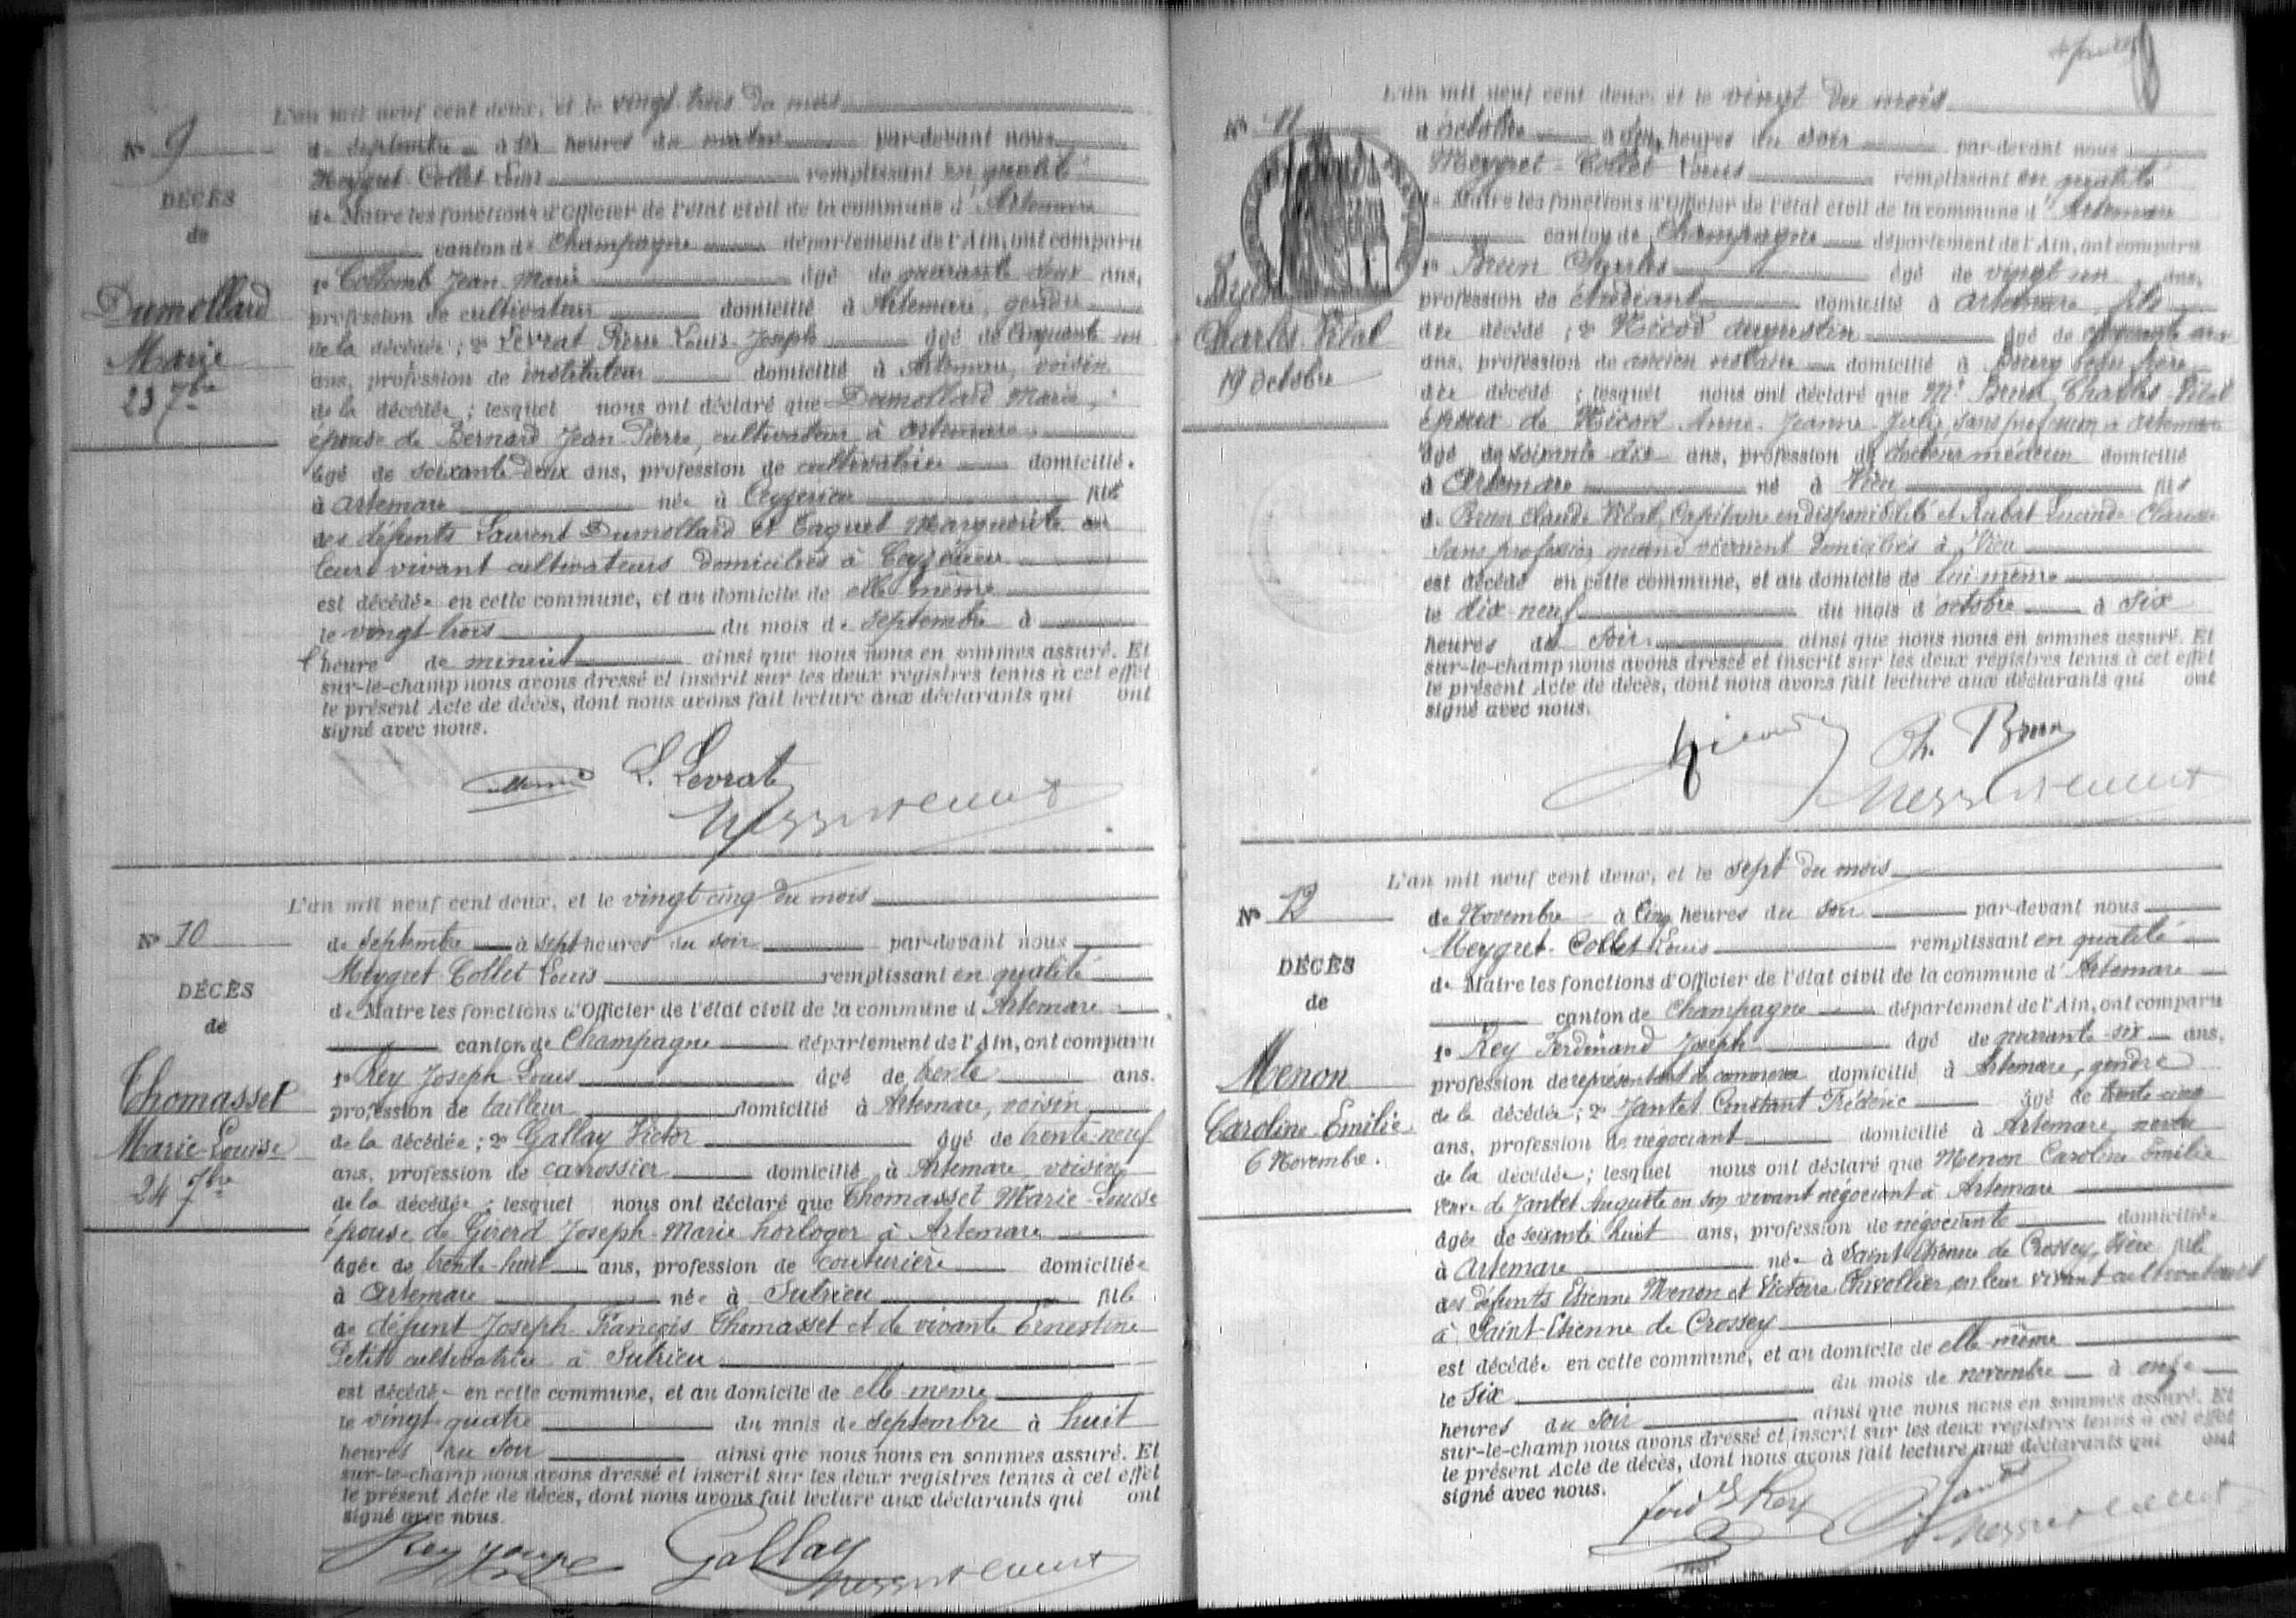 L'an mil neuf cent deux, et le vingt trois du mois
Nº 9
de septembre à dix heures du matin par-devant nous
Meygret-Collet Louis remplissant en qualité
DÉCÈS
de Maire les fonctions d'Officier de l'état civil de la commune d'Artemare
de
canton de Champagne département de l'Ain, ont comparu
1º Collomb Jean Marie âgé de quarante deux ans,
Dumollard
profession de cultivateur domicilié à Artemare, gendre
de la décédée ; 2º Levrat Pierre Louis Joseph âgé de cinquante un
Marie
ans, profession de instituteur domicilié à Artemare, voisin
23 7bre
de la décédée ; lesquel nous ont déclaré que Dumollard Marie,
épouse de Bernard Jean Pierre, cultivateur à Artemare
âgé de soixante deux ans, profession de cultivatrice domiciliée
à Artemare née à Ceyzérieu fille
des défunts Laurent Dumollard et Marguerite en
leur vivant cultivateurs domiciliés à Ceyzérieu
est décédée en cette commune, et au domicile de elle même
le vingt trois du mois de septembre à
l'heure de minuit ainsi que nous nous en sommes assuré. Et
sur-le-champ nous avons dressé et inscrit sur les deux registres tenus à cet effet
le présent Acte de décès, dont nous avons fait lecture aux déclarants qui ont
signé avec nous.
L. Levrat
L'an mil neuf cent deux, et le vingt cinq du mois
Nº 10
de septembre à sept heures du soir par-devant nous
Meygret-Collet Louis remplissant en qualité
DÉCÈS
de Maire les fonctions d'Officier de l'état civil de la commune d'Artemare
de
canton de Champagne département de l'Ain, ont comparu
1º Rey Joseph Louis âgé de trente ans.
Thomasset
profession de tailleur domicilié à Artemare, voisin
Marie-Louise
de la décédée ; 2º Gallay Victor âgé de trente-neuf
24 7bre
ans, profession de carrossier domicilié à Artemare voisin
de la décédée ; lesquel nous ont déclaré que Thomasset Marie-Louise
épouse de Girerd Joseph-Marie horloger à Artemare
âgée de trente huit ans, profession de couturière domiciliée
à Artemare née à Sutrieu fille
de défunt Joseph François Thomasset et de vivante Ernestine
Petit cultivatrice à Sutrieu
est décédée en cette commune, et au domicile de elle même
le vingt quatre du mois de septembre à huit
heures du soir ainsi que nous nous en sommes assuré. Et
sur-le-champ nous avons dressé et inscrit sur les deux registres tenus à cet effet
le présent Acte de décès, dont nous avons fait lecture aux déclarants qui ont
signé avec nous.
Rey Gallay
L'an mil neuf cent deux, et le vingt du mois
Nº 11
d'octobre à six heures du soir par-devant nous
Meygret-Collet Louis remplissant en qualité
de Maire les fonctions d'Officier de l'état civil de la commune d'Artemare
canton de Champagne département de l'Ain, ont comparu
Brun
1º Brun Charles âgé de vingt un ans,
profession de étudiant domicilié à Artemare, fils
Charles-Vital
du décédé ; 2º Nicod Augustin âgé de
19 octobre
ans, profession de ancien notaire domicilié à Bourg beau frère
du décédé ; lesquel nous ont déclaré que Mr Brun Charles-Vital
époux de Nicod Anne-Jeanne-Julie sans profession à Artemare
âgé de soixante dix ans, profession de docteur médecin domicilié
à Artemare né à Vieu fils
de Brun Claude Vital, Capitaine en disponibilité et Rubat Claudine
sans profession quand vivaient domiciliés à Vieu
est décédé en cette commune, et au domicile de lui même
le dix neuf du mois d'octobre à six
heures du soir ainsi que nous nous en sommes assuré. Et
sur-le-champ nous avons dressé et inscrit sur les deux registres tenus à cet effet
le présent Acte de décès, dont nous avons fait lecture aux déclarants qui ont
signé avec nous.
Nicod Ch. Brun
L'an mil neuf cent deux, et le sept du mois
Nº 12
de Novembre à cinq heures du soir par-devant nous
Meygret-Collet Louis remplissant en qualité
DÉCÈS
de Maire les fonctions d'Officier de l'état civil de la commune d'Artemare
de
canton de Champagne département de l'Ain, ont comparu
1º Rey Ferdinand Joseph âgé de quarante-six ans,
Menon
profession de représentant de commerce domicilié à Artemare, gendre
Caroline-Emilie
de la décédée ; 2º Jantet Constant Frédéric âgé de trente cinq
6 Novembre.
ans, profession de négociant domicilié à Artemare, neveu
de la décédée ; lesquel nous ont déclaré que Menon Caroline Emilie
veuve de Jantet Auguste en son vivant négociant à Artemare
âgée de soixante huit ans, profession de négociante domiciliée
à Artemare née à Saint Etienne de Crossey, Isère fille
des défunts Etienne Menon et Victoire Chevallier, en leur vivant cultivateurs
à Saint-Etienne de Crossey
est décédée en cette commune, et au domicile de elle même
le six du mois de novembre à onze
heures du soir ainsi que nous nous en sommes assuré. Et
sur-le-champ nous avons dressé et inscrit sur les deux registres tenus à cet effet
le présent Acte de décès, dont nous avons fait lecture aux déclarants qui ont
signé avec nous.
Ferd Rey Jantet